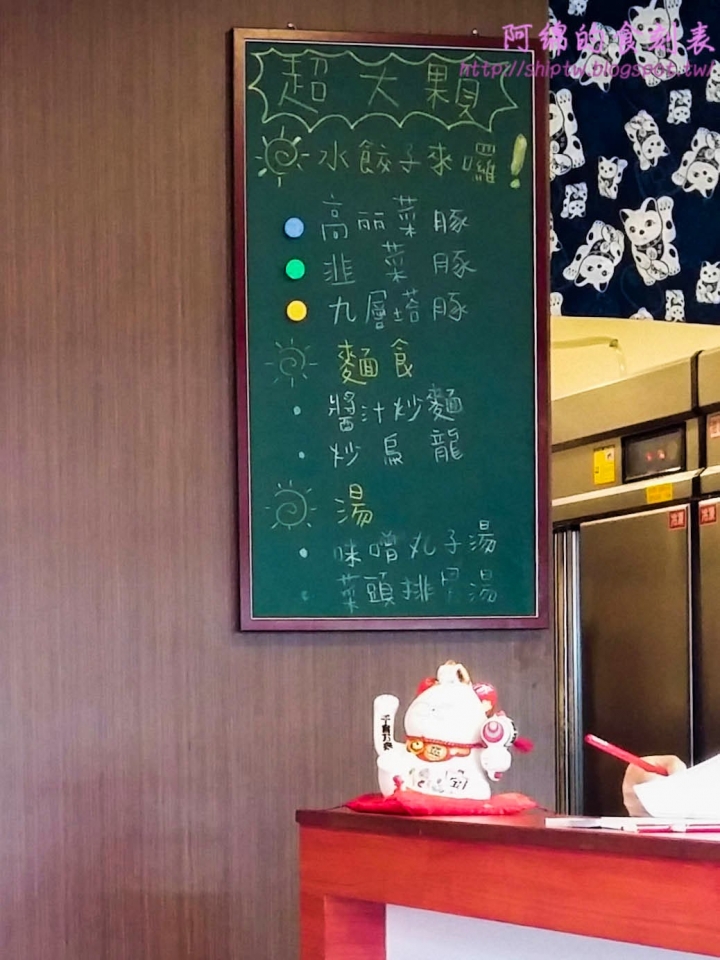 阿綿的食刻表
http://shiptw.blogspot.tw/
超大顆
水餃子來囉!
高麗菜豚
韭菜豚
九層塔豚
麵食
醬汁炒麵
炒烏龍
湯
味噌丸子湯
菜頭排骨湯
冷凍
冷凍